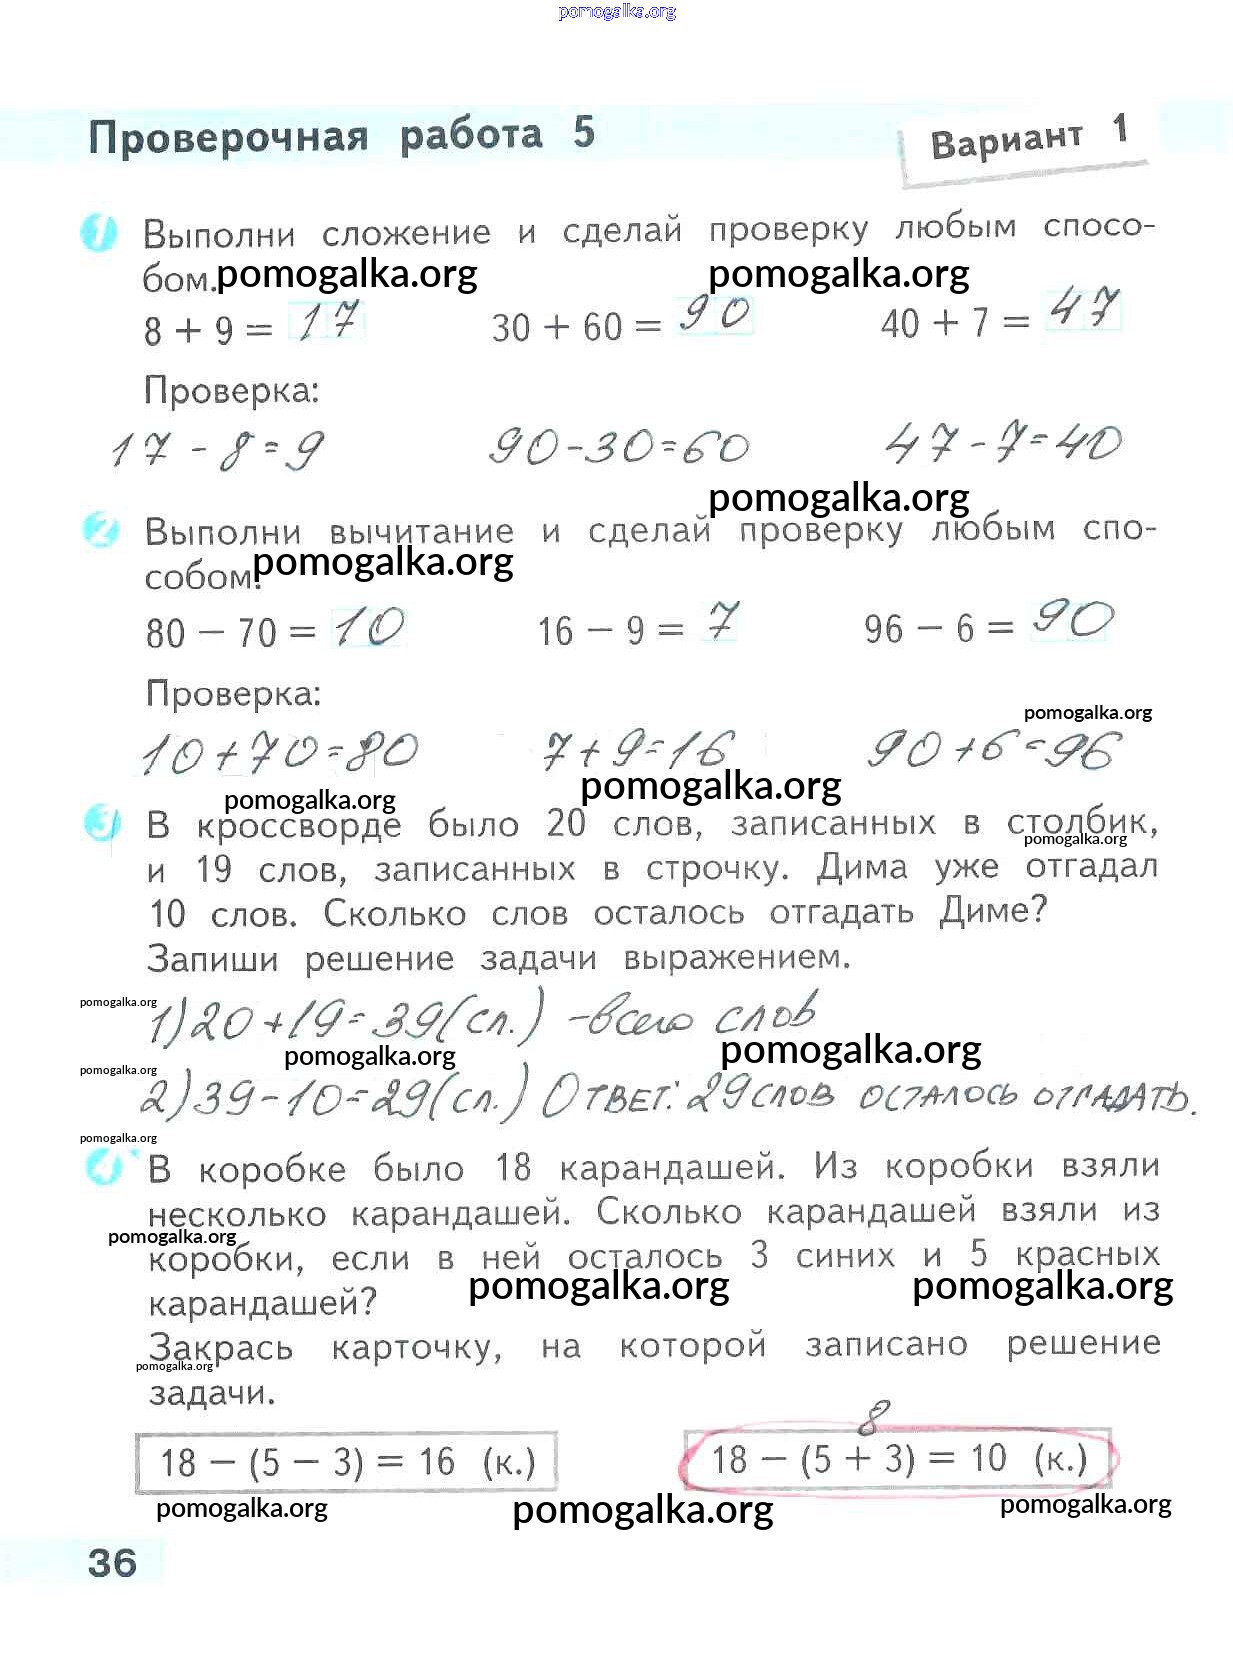 pomogalka.org
Проверочная работа 5
Вариант 1
1 Выполни сложение и сделай проверку любым спосо-
бом. pomogalka.org pomogalka.org
8 + 9 = 17 30 + 60 = 90 40 + 7 = 47
Проверка:
17 - 8 = 9 90 - 30 = 60 47 - 7 = 40
pomogalka.org
2 Выполни вычитание и сделай проверку любым спо-
собом. pomogalka.org
80 − 70 = 10 16 − 9 = 7 96 − 6 = 90
Проверка:
pomogalka.org
10 + 70 = 80 7 + 9 = 16 90 + 6 = 96
pomogalka.org pomogalka.org
3 В кроссворде было 20 слов, записанных в столбик,
pomogalka.org
и 19 слов, записанных в строчку. Дима уже отгадал
10 слов. Сколько слов осталось отгадать Диме?
Запиши решение задачи выражением.
pomogalka.org
1) 20 + 19 = 39 (сл.) - всего слов
pomogalka.org pomogalka.org
pomogalka.org
2) 39 - 10 = 29 (сл.) Ответ: 29 слов осталось отгадать.
pomogalka.org
4 В коробке было 18 карандашей. Из коробки взяли
несколько карандашей. Сколько карандашей взяли из
pomogalka.org
коробки, если в ней осталось 3 синих и 5 красных
pomogalka.org pomogalka.org
карандашей?
Закрась карточку, на которой записано решение
pomogalka.org
задачи.
8
18 − (5 − 3) = 16 (к.) 18 − (5 + 3) = 10 (к.)
pomogalka.org pomogalka.org pomogalka.org
36